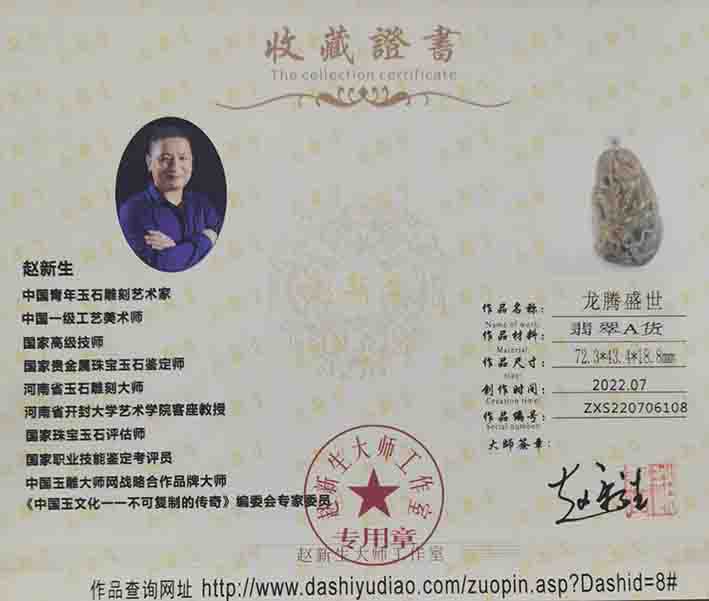 收藏證書
The collection certificate
赵新生
中国青年玉石雕刻艺术家
中国一级工艺美术师
国家高级技师
国家贵金属珠宝玉石鉴定师
河南省玉石雕刻大师
河南省开封大学艺术学院客座教授
国家珠宝玉石评估师
国家职业技能鉴定考评员
中国玉雕大师网战略合作品牌大师
《中国玉文化一一不可复制的传奇》编委会专家委员
作品名称: 龙腾盛世
Name of work:
作品材料: 翡翠A货
Material:
作品尺寸: 72.3*43.4*18.8mm
size:
创作时间: 2022.07
Creation time:
作品编号: ZXS220706108
Serial number:
大師签章:
赵新生
赵新生大师工作室
专用章
赵新生大师工作室
作品查询网址 http://www.dashiyudiao.com/zuopin.asp?Dashid=8#